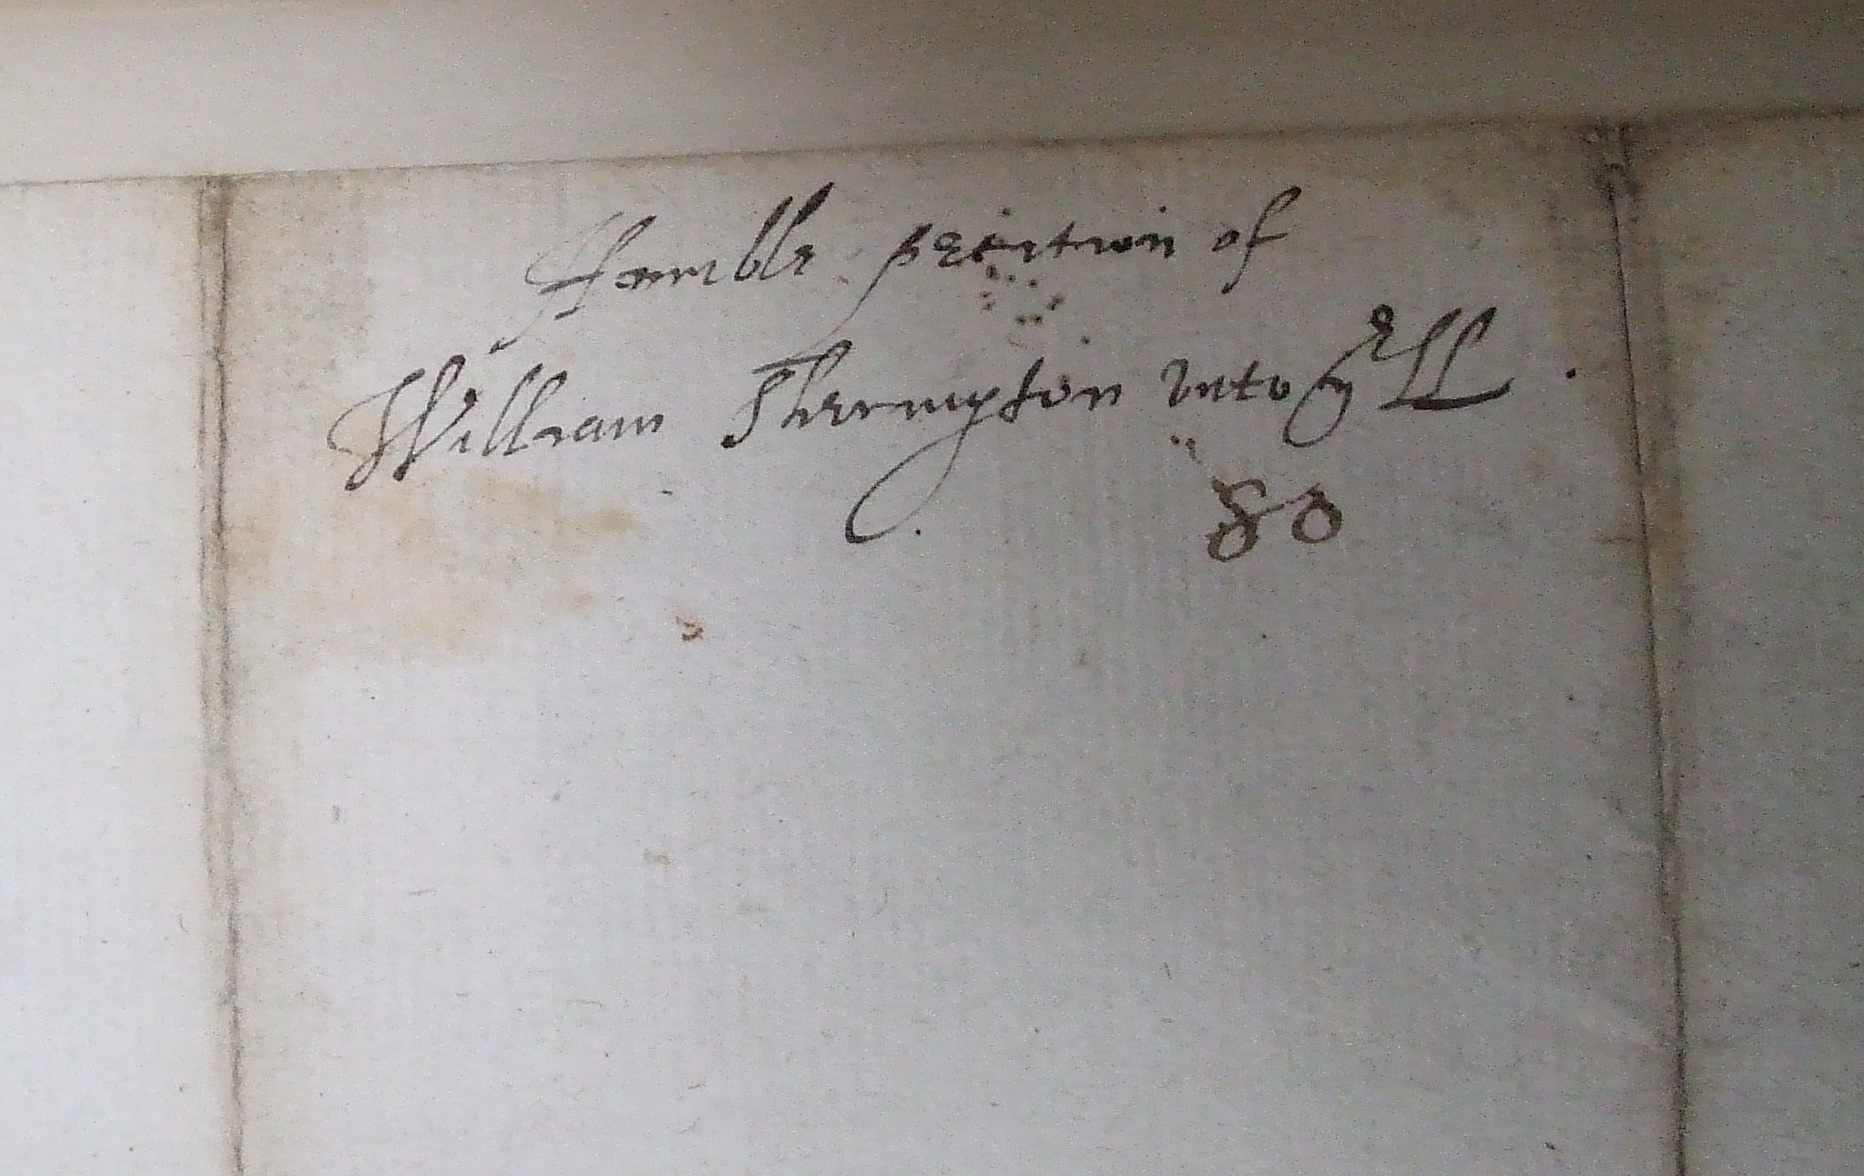 Humble petition of
William Thempson vnto ye LL .
80